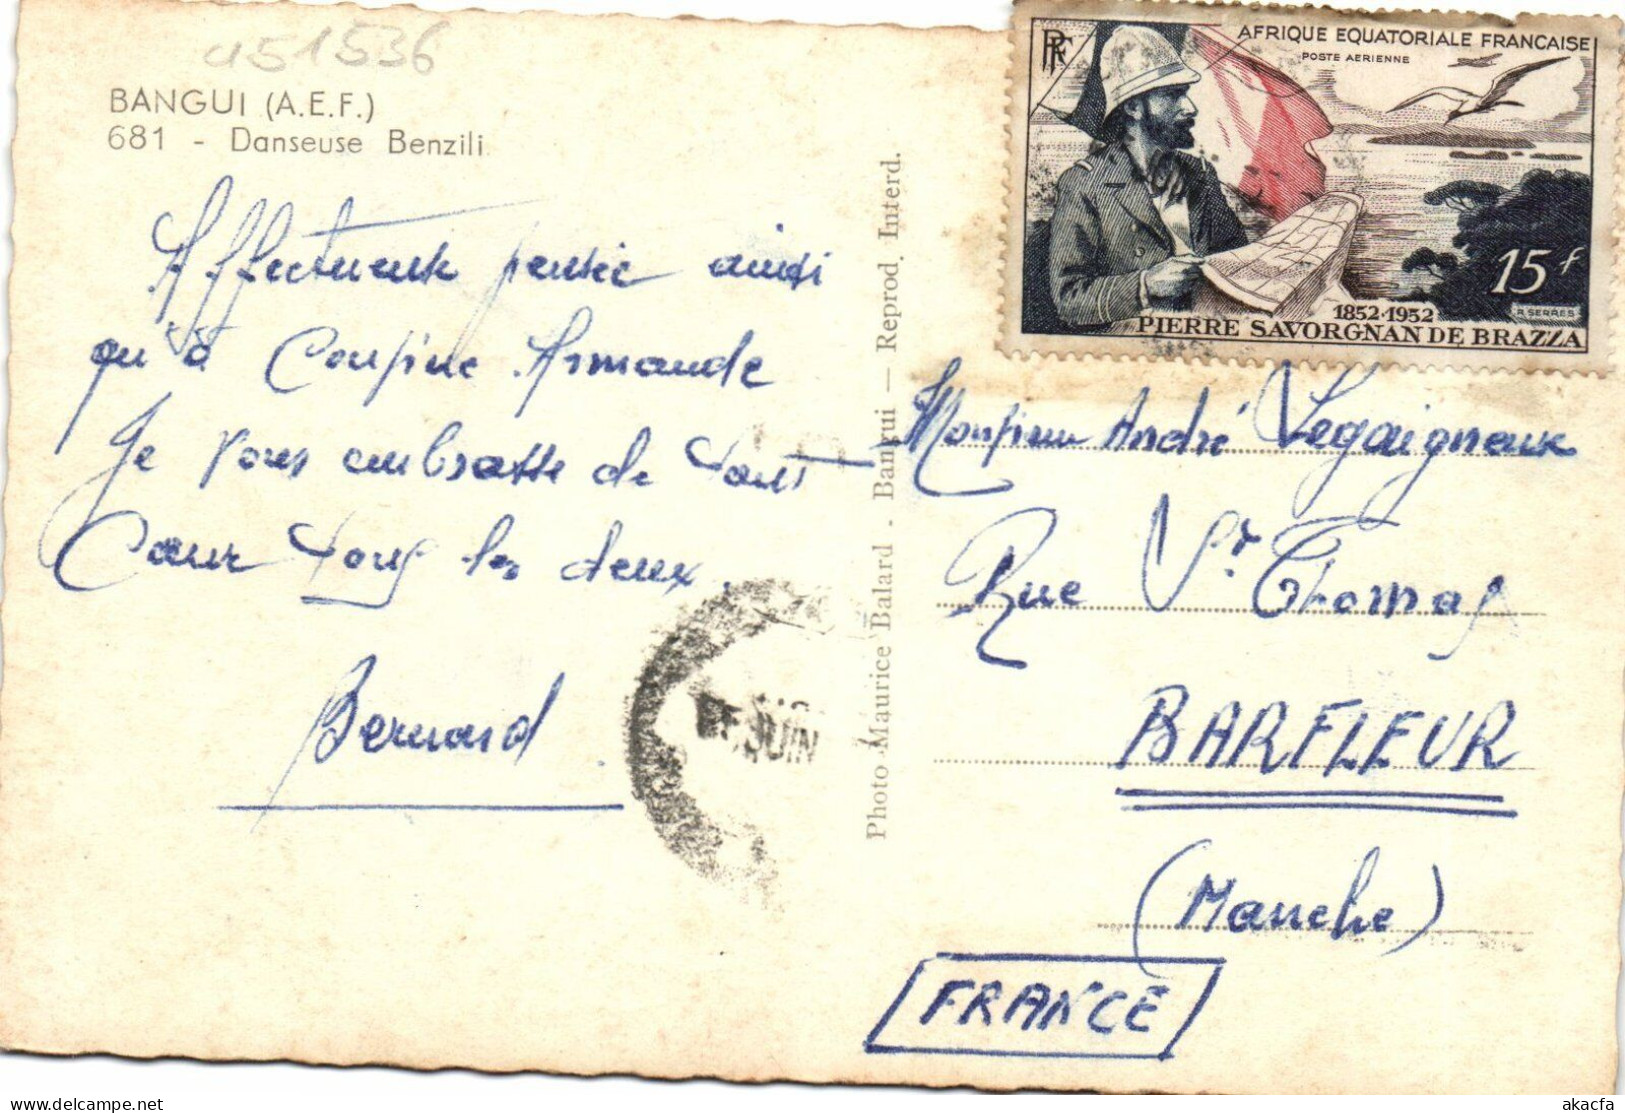 a51536
BANGUI (A.E.F.)
681 - Danseuse Benzili
Affectueuse pensée ainsi
qu'à Cousine Armande
Je vous embrasse de tout
Cœur tous les deux.
Bernard.
JUIN
Photo Maurice Balard - Bangui — Reprod. Interd.
RF
AFRIQUE EQUATORIALE FRANCAISE
POSTE AERIENNE
15f
R. SERRES
1852-1952
PIERRE SAVORGNAN DE BRAZZA
Monsieur André Legaigneux
Rue St Thomas
BARFLEUR
(Manche)
FRANCE
delcampe.net
akacfa